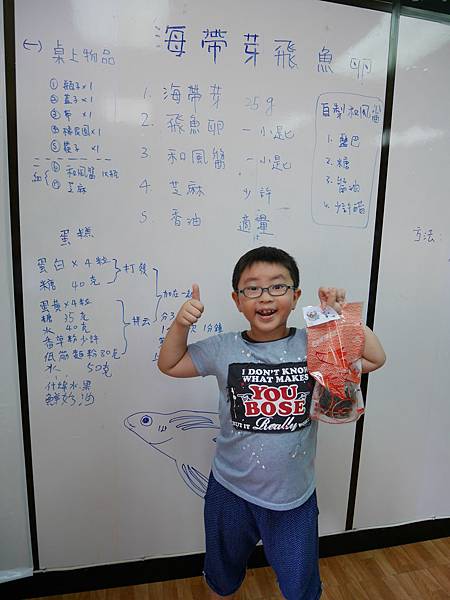 海帶芽飛魚卵
(一) 桌上物品
① 瓶子×1
② 蓋子×1
⑤ ×1
⑥ 和風醬
⑦ 芝麻
1. 海帶芽 25g
2. 飛魚卵 一小匙
3 和風醬 一小匙
4 芝麻 少許
5. 香油 適量
自製和風醬
1. 鹽巴
2. 糖
3. 醬油
4. 少許醋
方法:
蛋糕
蛋白×4粒
糖 40克
打發
蛋黃×4粒
糖 35克
水 40克
香草粉少許
低筋麵粉80克
水 50克
拌云
加在一起
1分鐘
什綜水果
鮮奶油
I DON'T KNOW
WHAT MAKES
YOU
BOSE
BUT IT Really